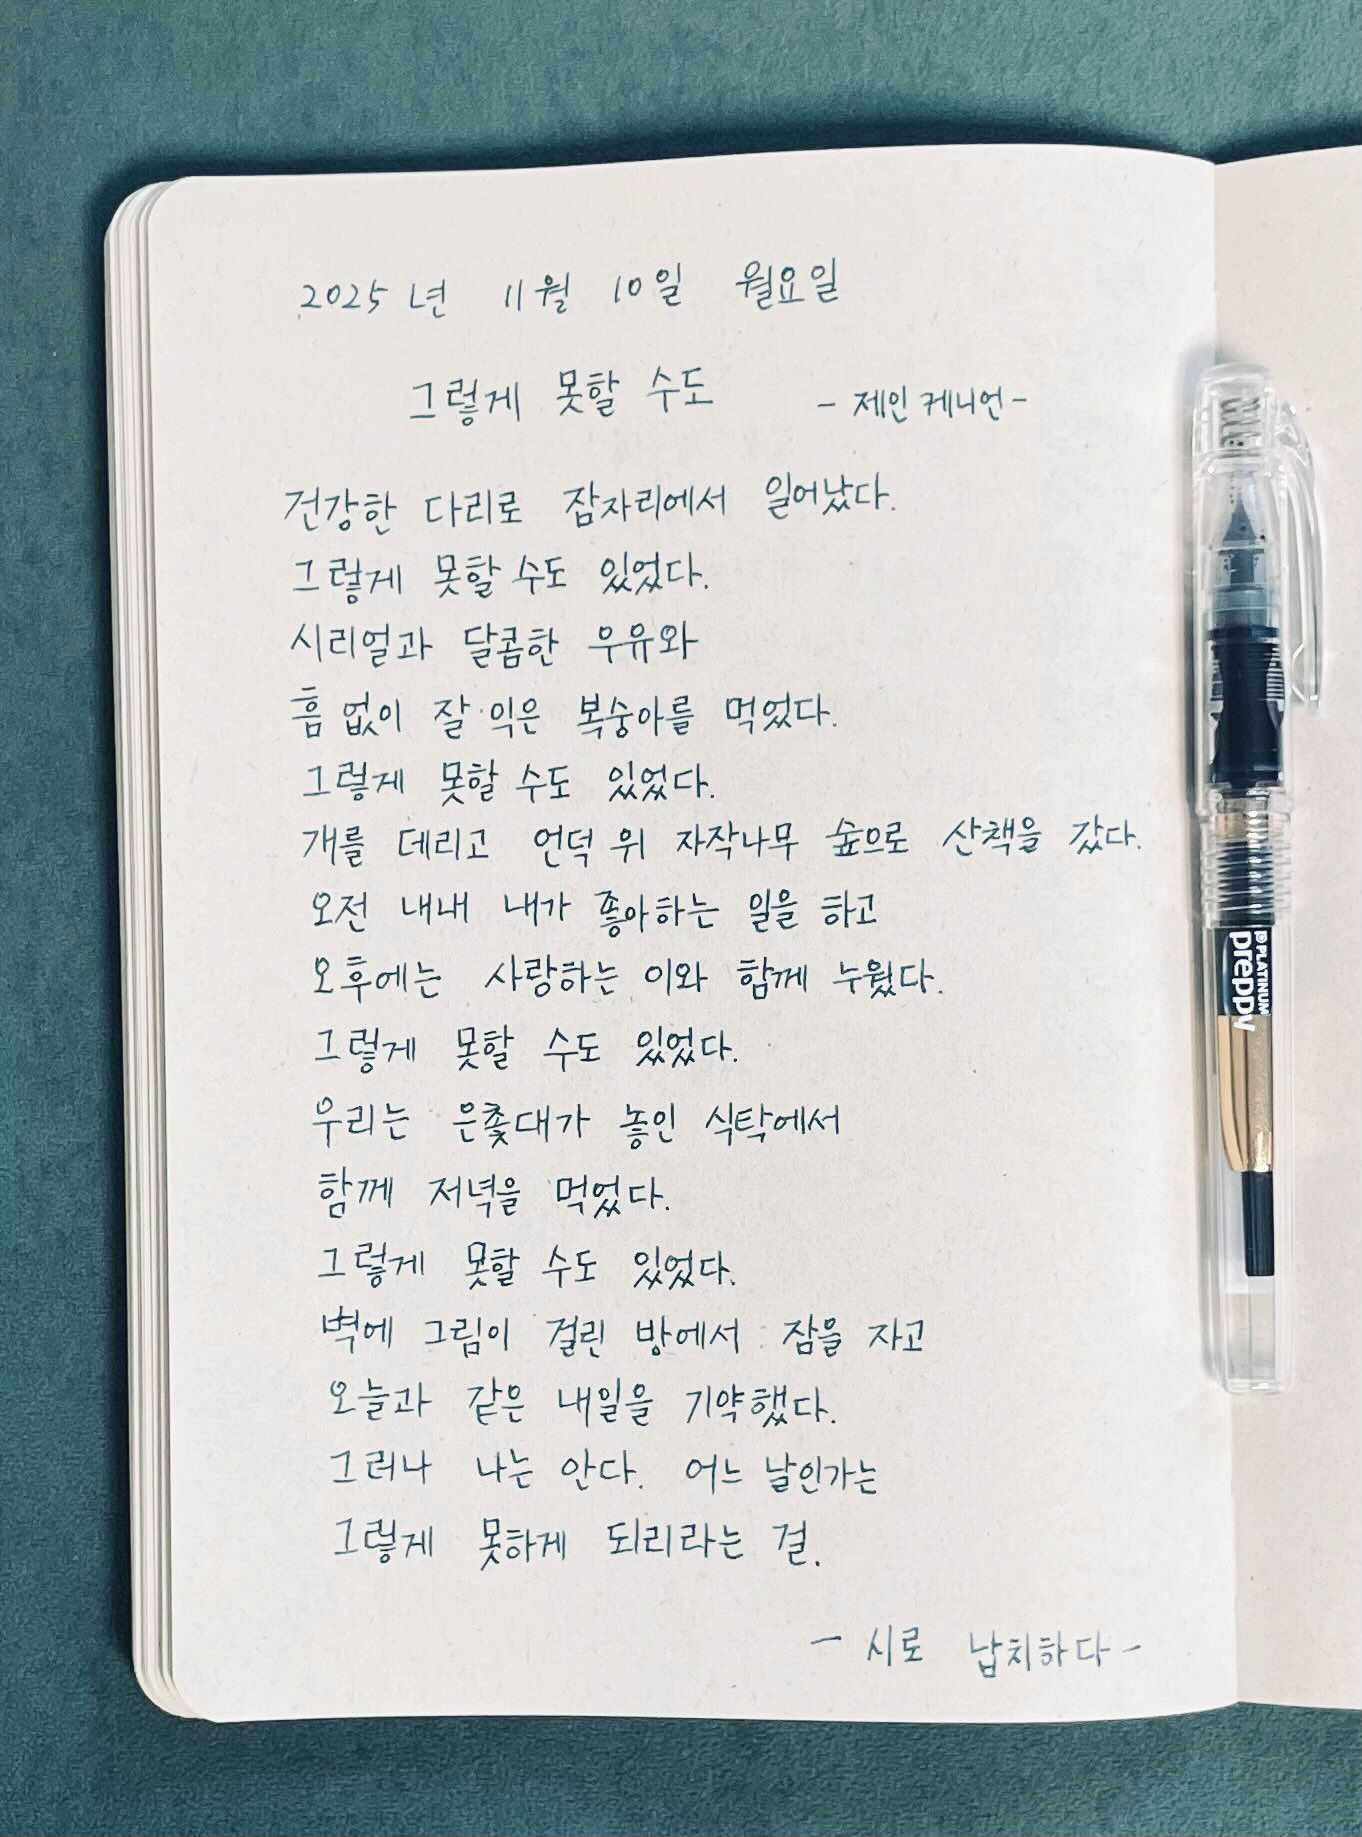 2025년 11월 10일 월요일
그렇게 못할 수도 - 제인 케니언 -
건강한 다리로 잠자리에서 일어났다.
그렇게 못할 수도 있었다.
시리얼과 달콤한 우유와
흠 없이 잘 익은 복숭아를 먹었다.
그렇게 못할 수도 있었다.
개를 데리고 언덕 위 자작나무 숲으로 산책을 갔다.
오전 내내 내가 좋아하는 일을 하고
오후에는 사랑하는 이와 함께 누웠다.
그렇게 못할 수도 있었다.
우리는 은촛대가 놓인 식탁에서
함께 저녁을 먹었다.
그렇게 못할 수도 있었다.
벽에 그림이 걸린 방에서 잠을 자고
오늘과 같은 내일을 기약했다.
그러나 나는 안다. 어느 날인가는
그렇게 못하게 되리라는 걸.
- 시로 납치하다 -
PLATINUM
preppy